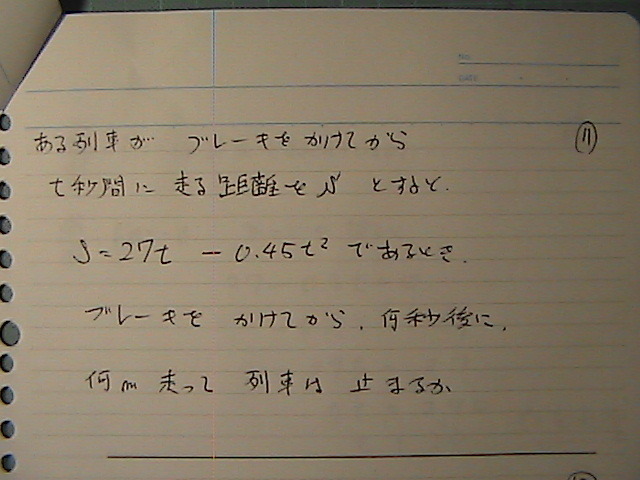 No.
DATE
ある列車が ブレーキをかけてから
⑪
t秒間に 走る距離をS とすると、
S=27t - 0.45t² であるとき、
ブレーキを かけてから、何秒後に、
何m 走って 列車は 止まるか